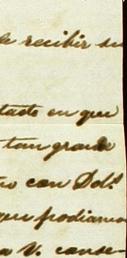 de recibir su
tado en que
tan grande
no con Dols
que podiamos
a V. conse-